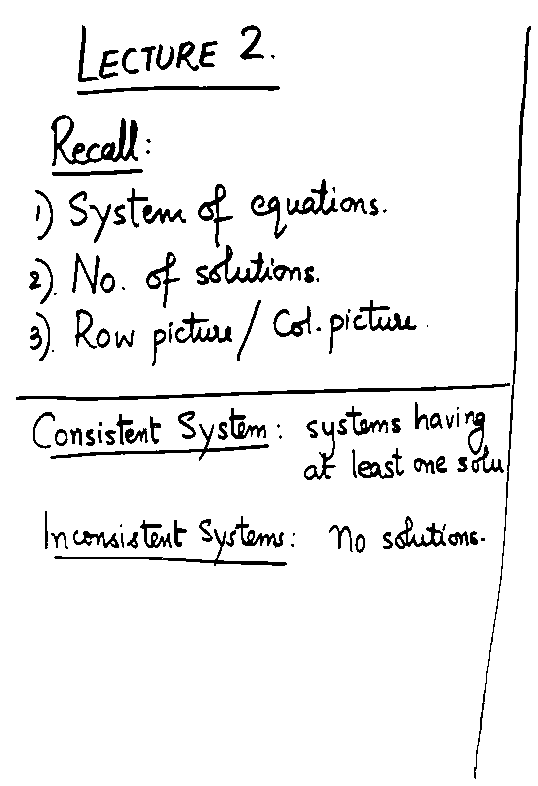 LECTURE 2.
Recall:
1) System of equations.
2). No. of solutions.
3). Row picture / Col. picture.
Consistent System: systems having
at least one solu
Inconsistent Systems: No solutions.